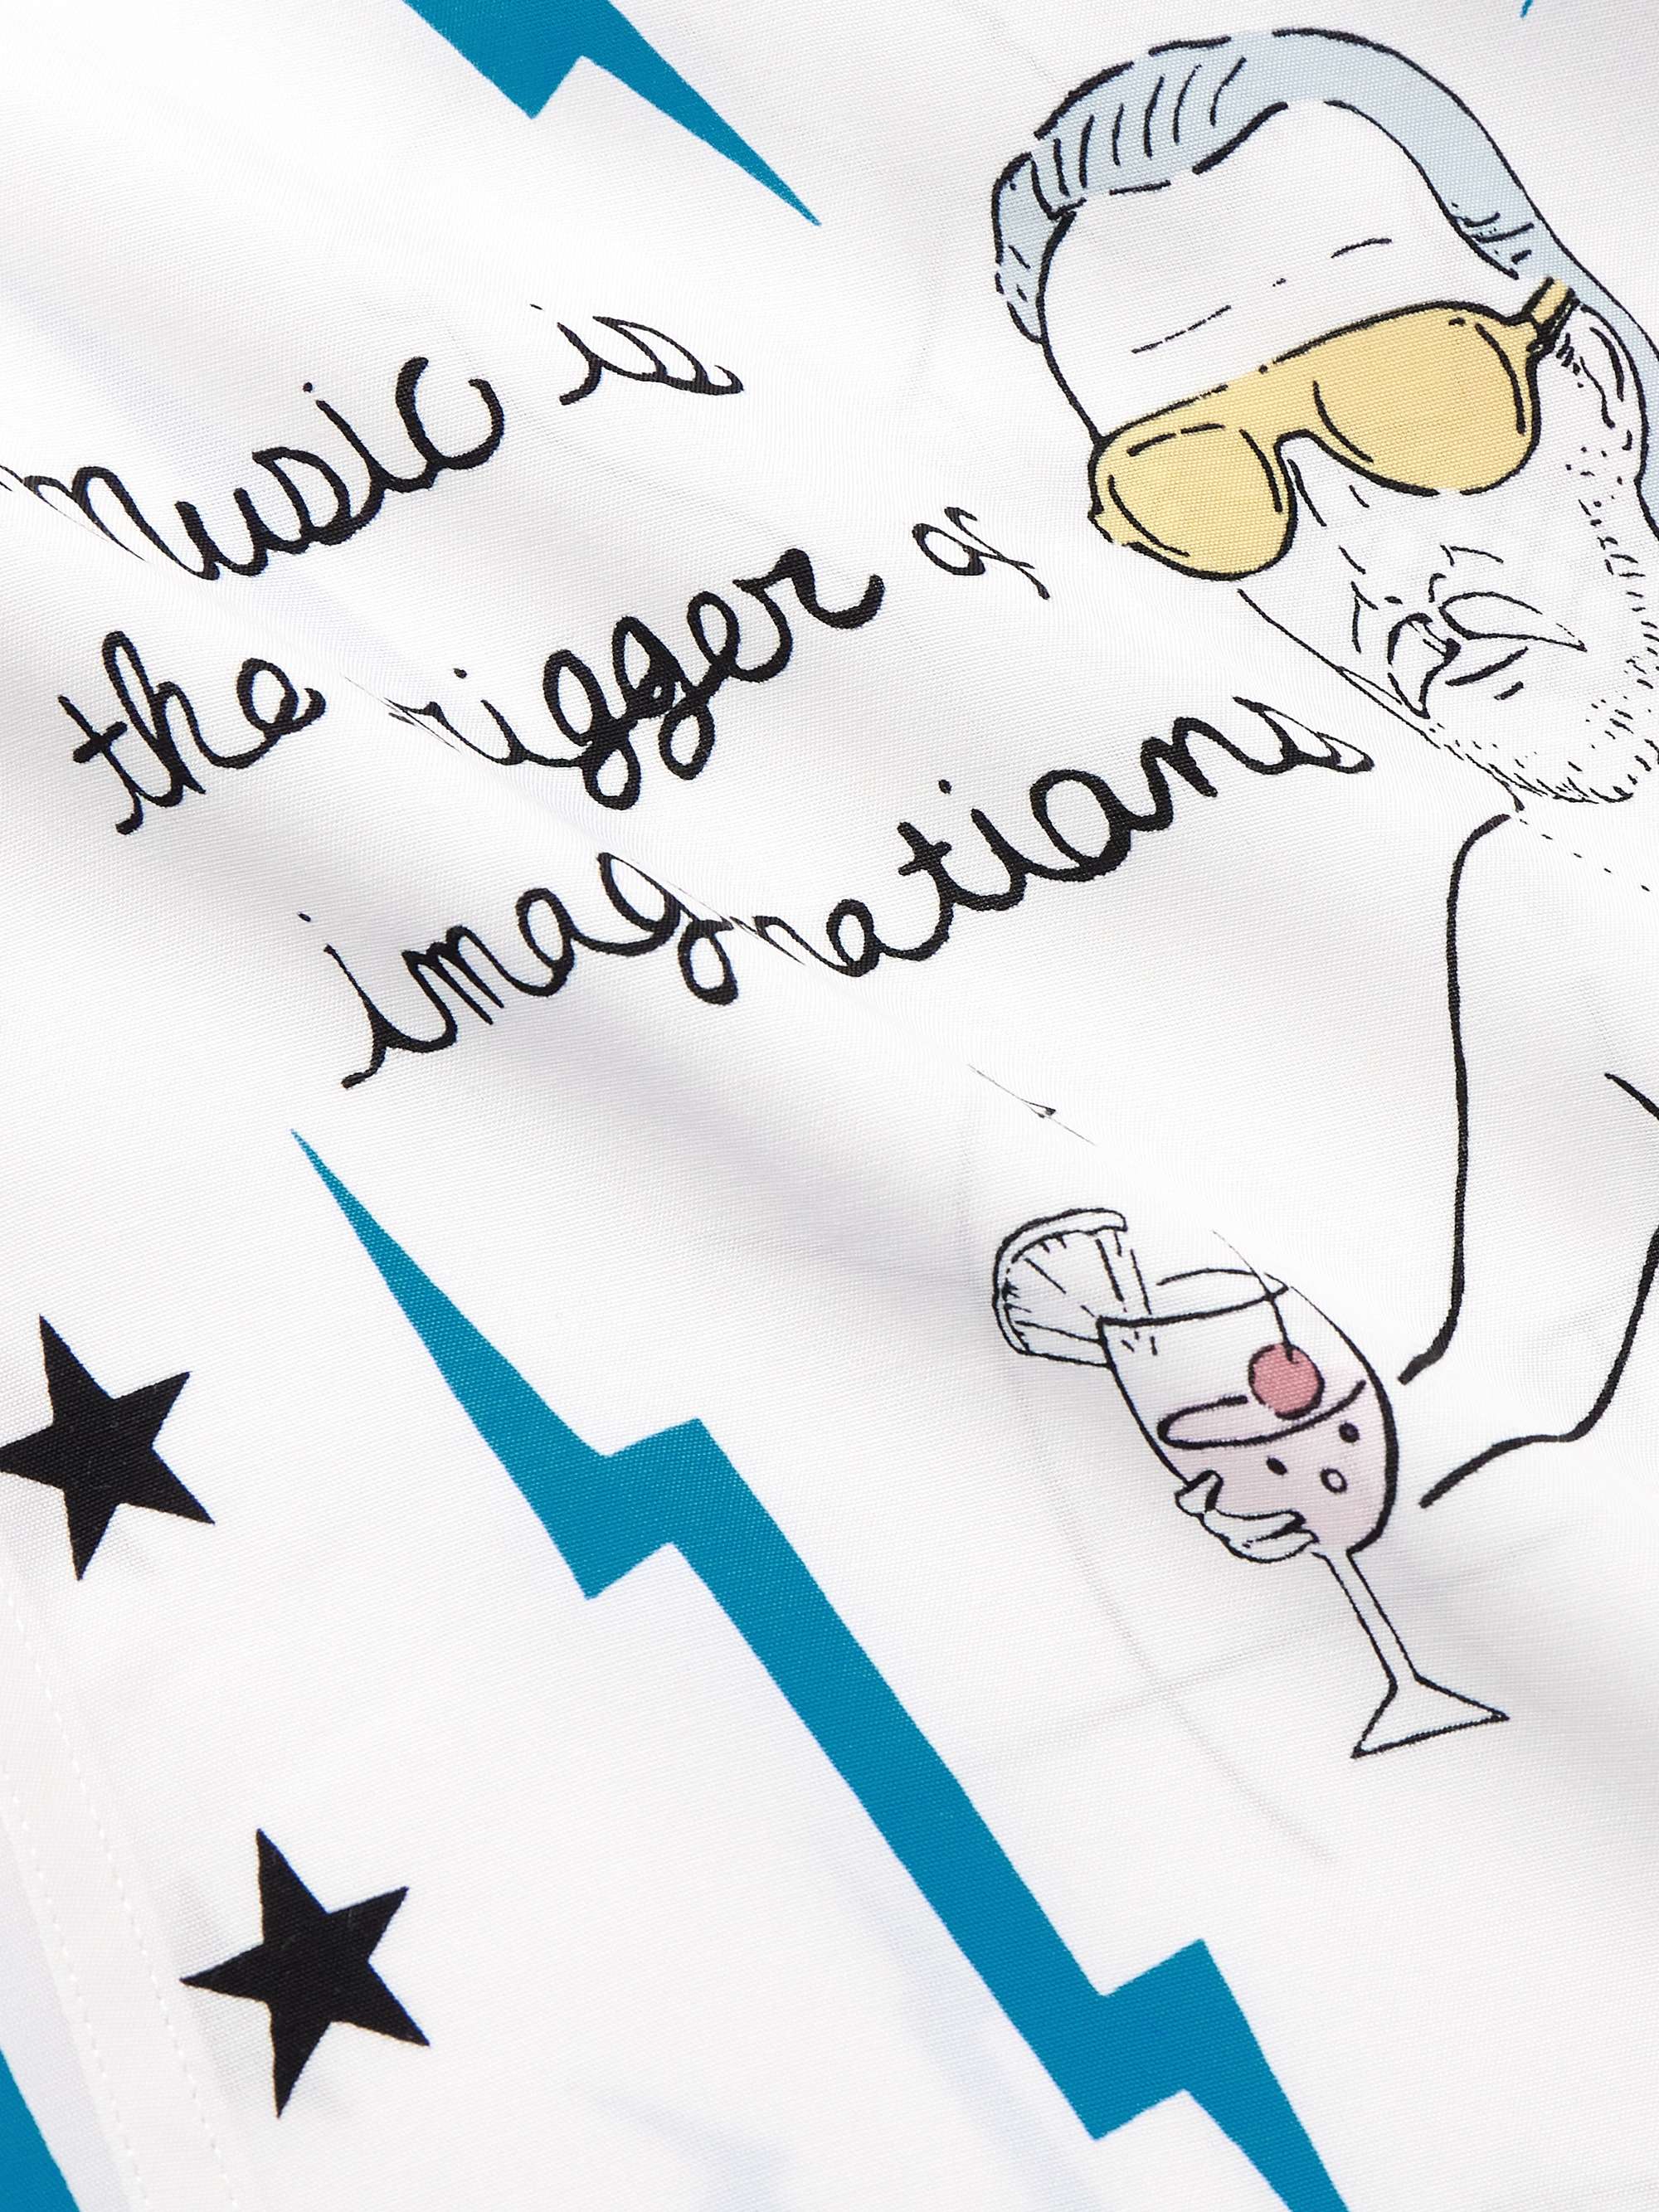 music is
the trigger of
imaginations